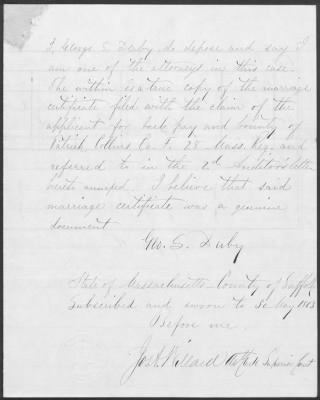 I, George S. Derby, do depose and say I
am one of the attorneys in this case.
The within is a true copy of the marriage
certificate filed with the claim of the
applicant for back pay and bounty of
Patrick Collins Co. F. 28 Mass. Reg. and
referred to in the 2nd Auditor's letter
hereto annexed. I believe that said
marriage certificate was a genuine
document
Geo. S. Derby
State of Massachusetts County of Suffolk
Subscribed and sworn to May 1883
Before me.
Jos. A. Willard Clerk Superior Court